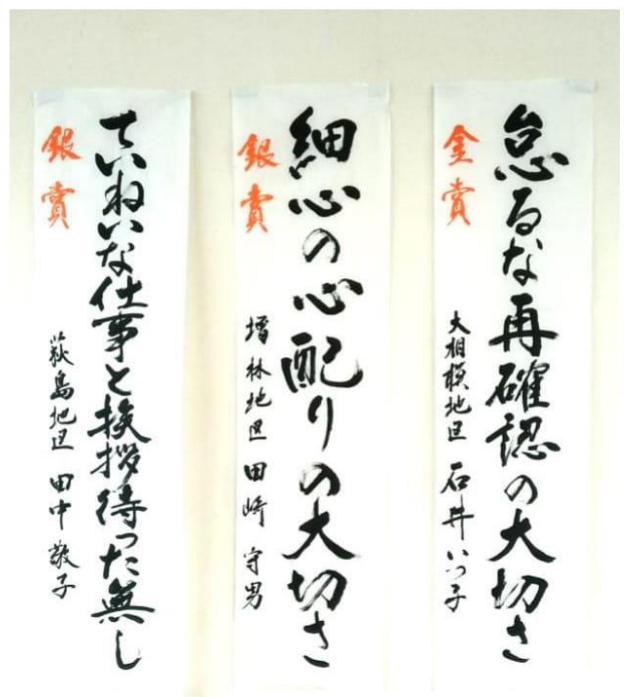 金賞
怠るな再確認の大切さ
大相模地区 石井いつ子
銀賞
細心の心配りの大切さ
増林地区 田崎守男
銀賞
ていねいな仕事と挨拶待った無し
荻島地区 田中敬子